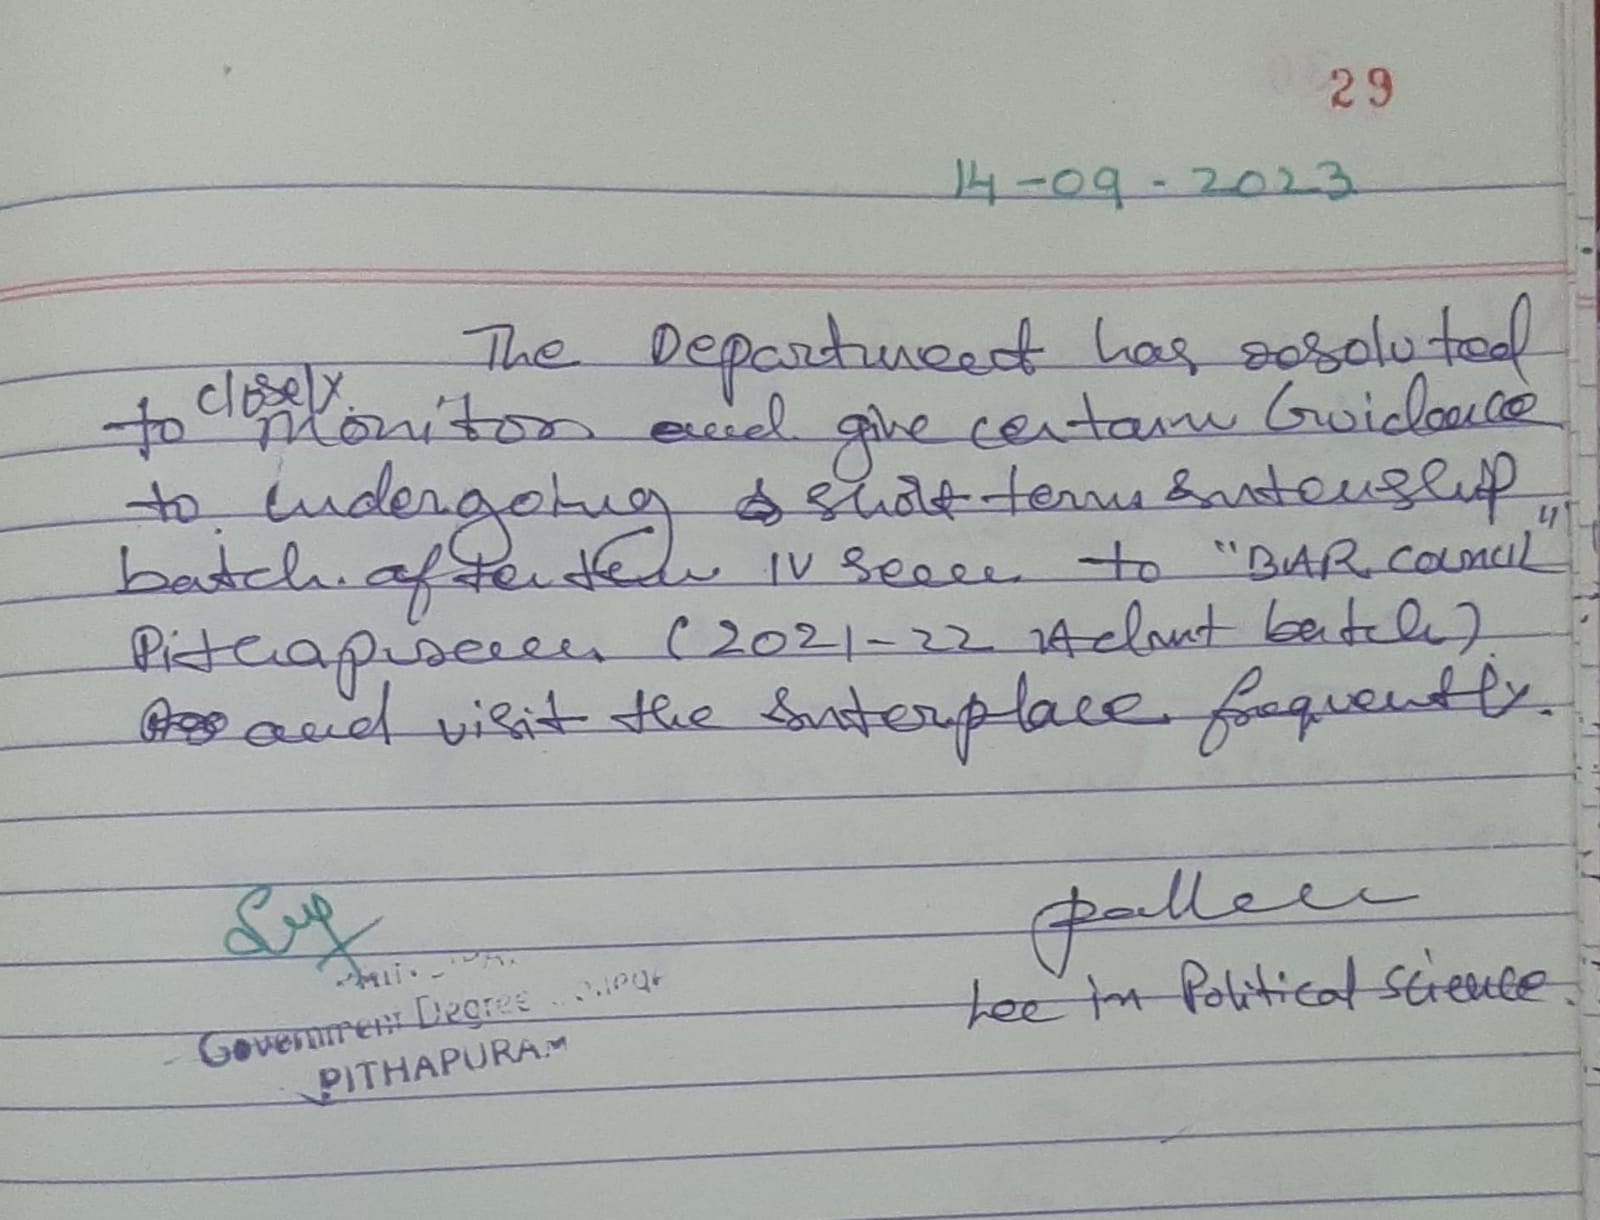 29
14-09-2023
The Department has resoluted
to closely monitor and give certain Guidance
to undergoing short term Internship
batch after their IV Sem to "BAR council"
Pithapuram (2021-22 Admt batch)
and visit the Internplace frequently.
Lec in Political Science.
Government Degree College
PITHAPURAM